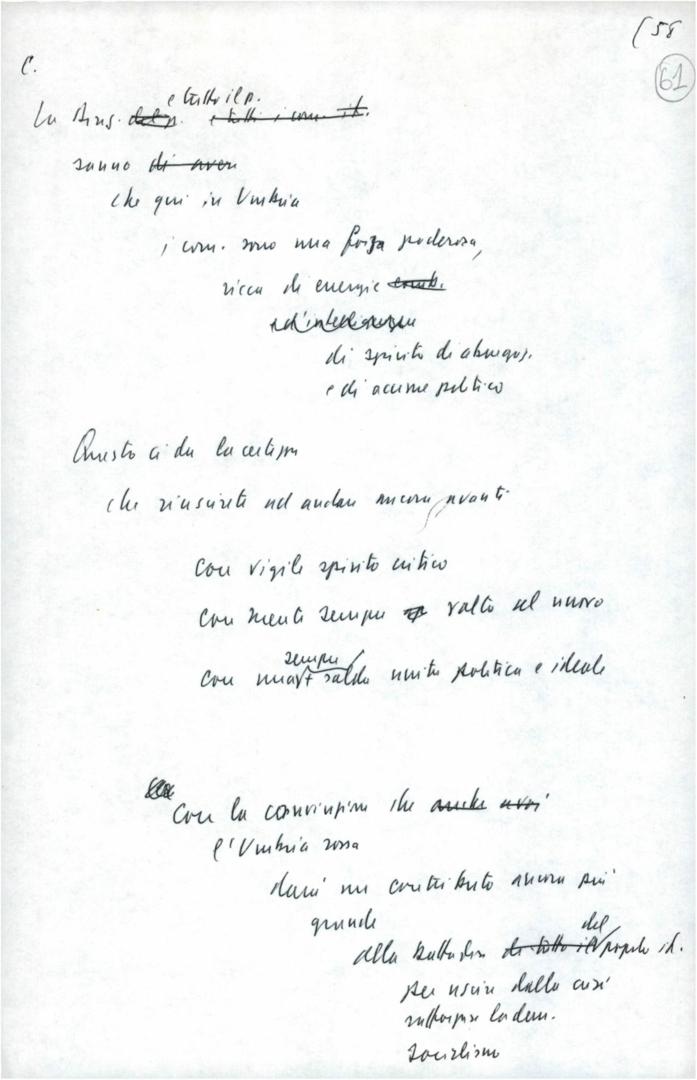 58
C.
61
e tutto il p.
La Direz. del p. e tutti i com. it.
sanno di avere
che qui in Umbria
i com. sono una forza poderosa,
ricca di energie comb.
ed'intelligenza
di spirito di abnegaz.
e di acume politico
Questo ci da la certezza
che riuscirete ad andare ancora avanti
con vigile spirito critico
con mente sempre volta al nuovo
sempre
con una salda unità politica e ideale
Con la convinzione che anche voi
l'Umbria rossa
darà un contributo ancora più
grande
del
alla battaglia di tutto il popolo it.
per uscire dalla crisi
rafforzare la dem.
socialismo